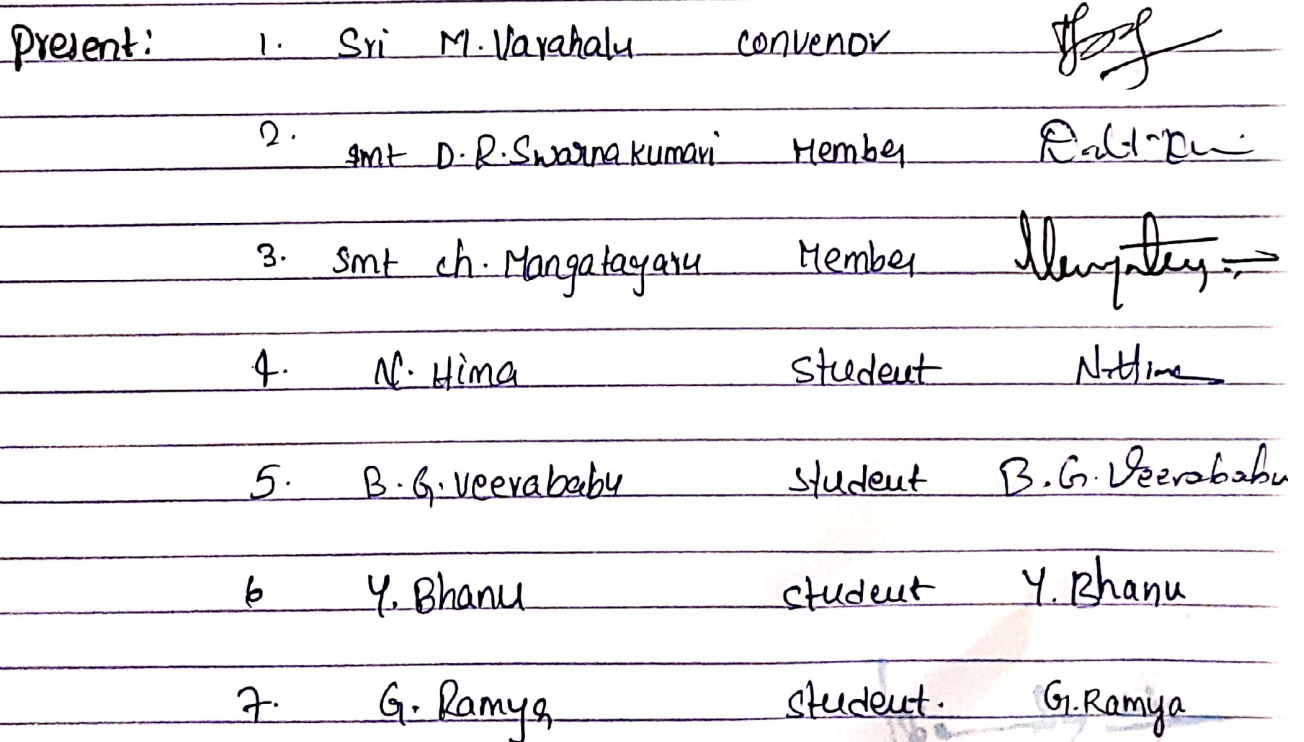 Present: 1. Sri M. Varahalu convenor
2. Smt D.R. Swarna kumari Member
3. Smt ch. Mangatayaru Member
4. N. Hima student N. Hima
5. B.G. veerababu student B.G. Veerababu
6 Y. Bhanu student Y. Bhanu
7. G. Ramya student. G. Ramya